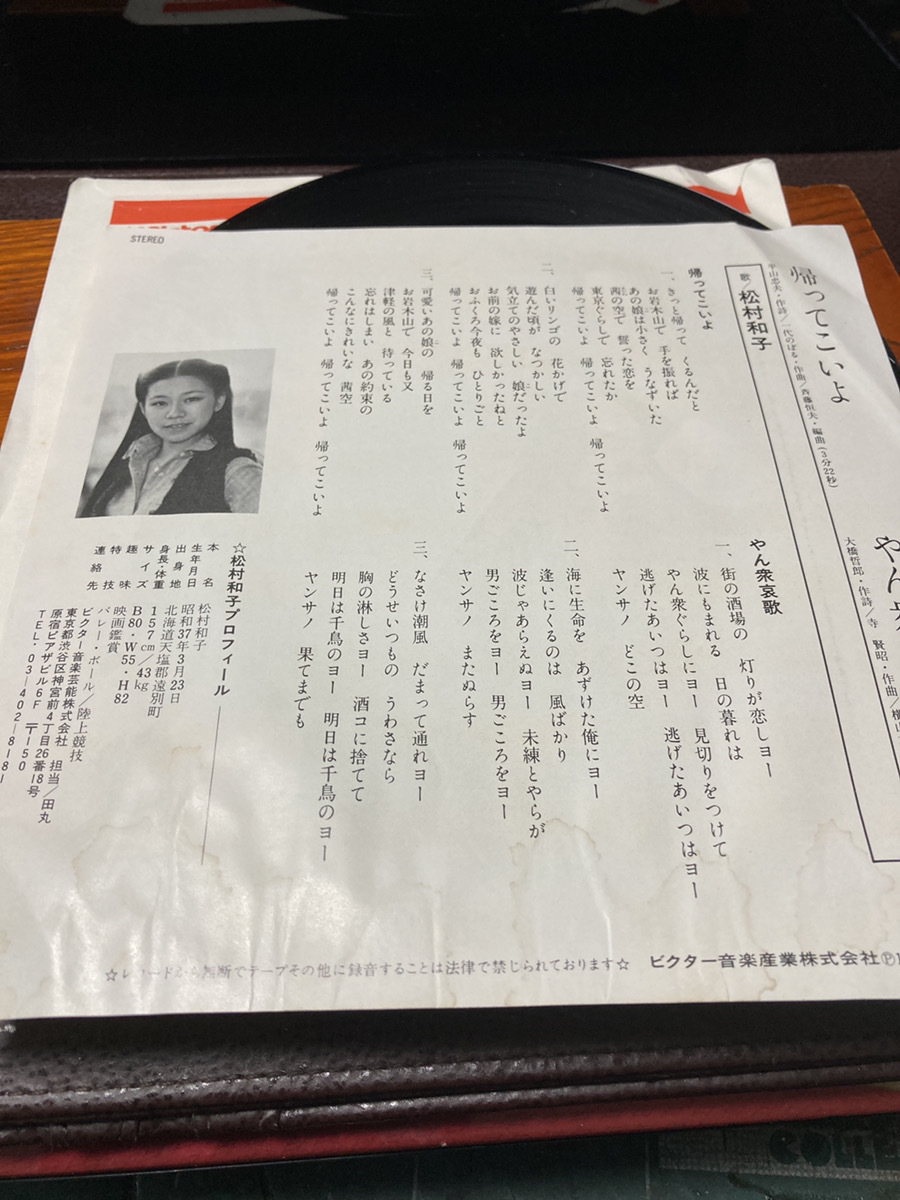 STEREO
帰ってこいよ
平山忠夫・作詩/一代のぼる・作曲/斉藤恒夫・編曲(3分22秒)
大橋哲郎・作詩/寺 賢昭・作曲/横山
歌/松村和子
帰ってこいよ
一、きっと帰って くるんだと
お岩木山で 手を振れば
あの娘は小さく うなずいた
茜の空で 誓った恋を
東京ぐらしで 忘れたか
帰ってこいよ 帰ってこいよ 帰ってこいよ
二、白いリンゴの 花かげで
遊んだ頃が なつかしい
気立てのやさしい 娘だったよ
お前の嫁に 欲しかったねと
おふくろ今夜も ひとりごと
帰ってこいよ 帰ってこいよ 帰ってこいよ
三、可愛いあの娘の 帰る日を
お岩木山で 今日も又
津軽の風と 待っている
忘れはしまい あの約束の
こんなにきれいな 茜空
帰ってこいよ 帰ってこいよ 帰ってこいよ
やん衆哀歌
一、街の酒場の 灯りが恋しヨー
波にもまれる 日の暮れは
やん衆ぐらしにヨー 見切りをつけて
逃げたあいつはヨー 逃げたあいつはヨー
ヤンサノ どこの空
二、海に生命を あずけた俺にヨー
逢いにくるのは 風ばかり
波じゃあらえぬヨー 未練とやらが
男ごころをヨー 男ごころをヨー
ヤンサノ またぬらす
三、なさけ潮風 だまって通れヨー
どうせいつもの うわさなら
胸の淋しさヨー 酒コに捨てて
明日は千鳥のヨー 明日は千鳥のヨー
ヤンサノ 果てまでも
☆松村和子プロフィール
本名 松村和子
生年月日 昭和37年3月23日
出身地 北海道天塩郡遠別町
身長・体重 157cm/43kg
サイズ B80・W55・H82
趣味 映画鑑賞
特技 バレー・ボール/陸上競技
連絡先 ビクター音楽芸能株式会社 担当/田丸
東京都渋谷区神宮前4丁目26番18号
原宿ピアザビル6F 〒150
TEL・03-402-8181
☆レコードから無断でテープその他に録音することは法律で禁じられております☆
ビクター音楽産業株式会社Ⓟ